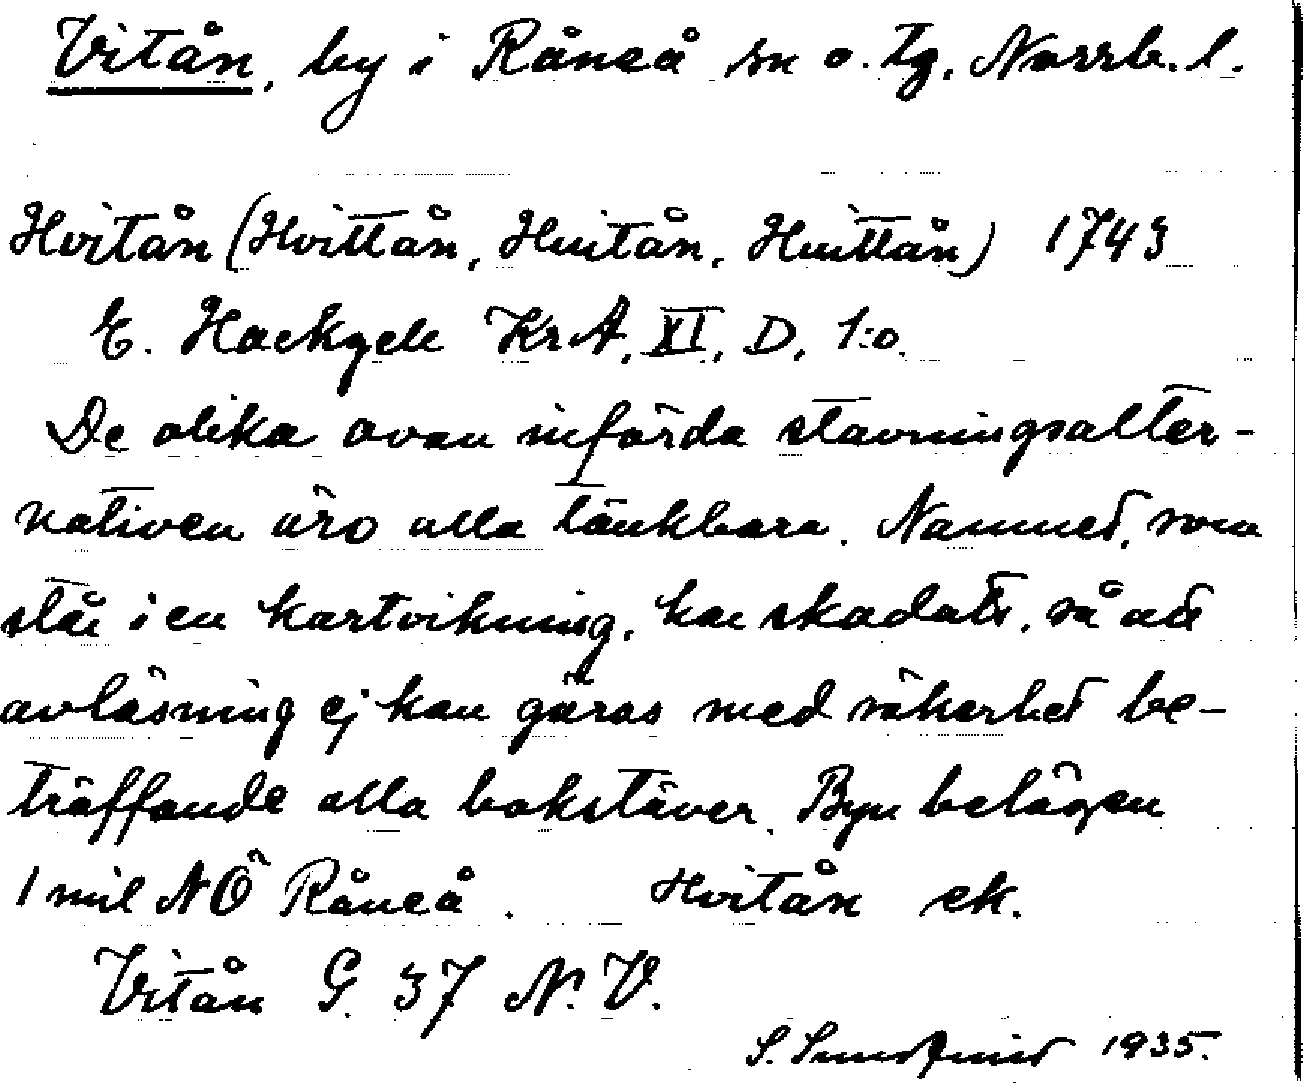 Vitån, by i Råneå sn o. tg, Norrb. l.
Hvitån (Hvittån, Huitån, Huittån) 1743
E. Hackzell KrA, XI, D, 1:o.
De olika ovan införda stavningsalter-
nativen äro alla tänkbara. Namnet, som
står i en kartvikning, har skadats, så att
avläsning ej kan göras med säkerhet be-
träffande alla bokstäver. Byn belägen
1 mil NÖ Råneå. Hvitån ek.
Vitån G. 37 N.V.
S. 1935.